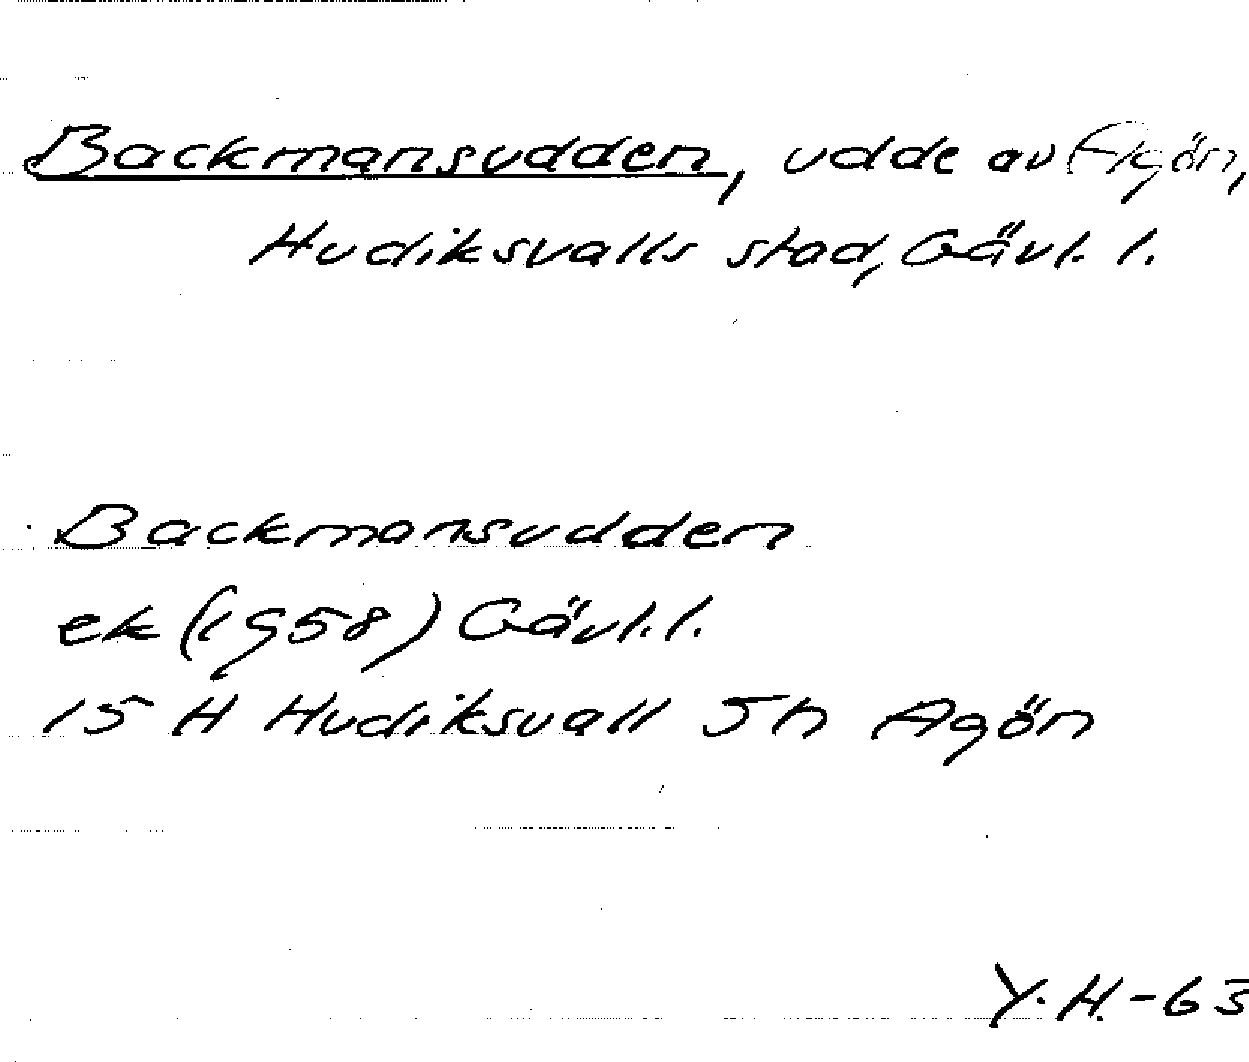 Backmansudden, udde av Agön,
Hudiksvalls stad, Gävl. l.
Backmansudden
ek (1958) Gävl. l.
15 H Hudiksvall 5h Agön
Y. H. -63